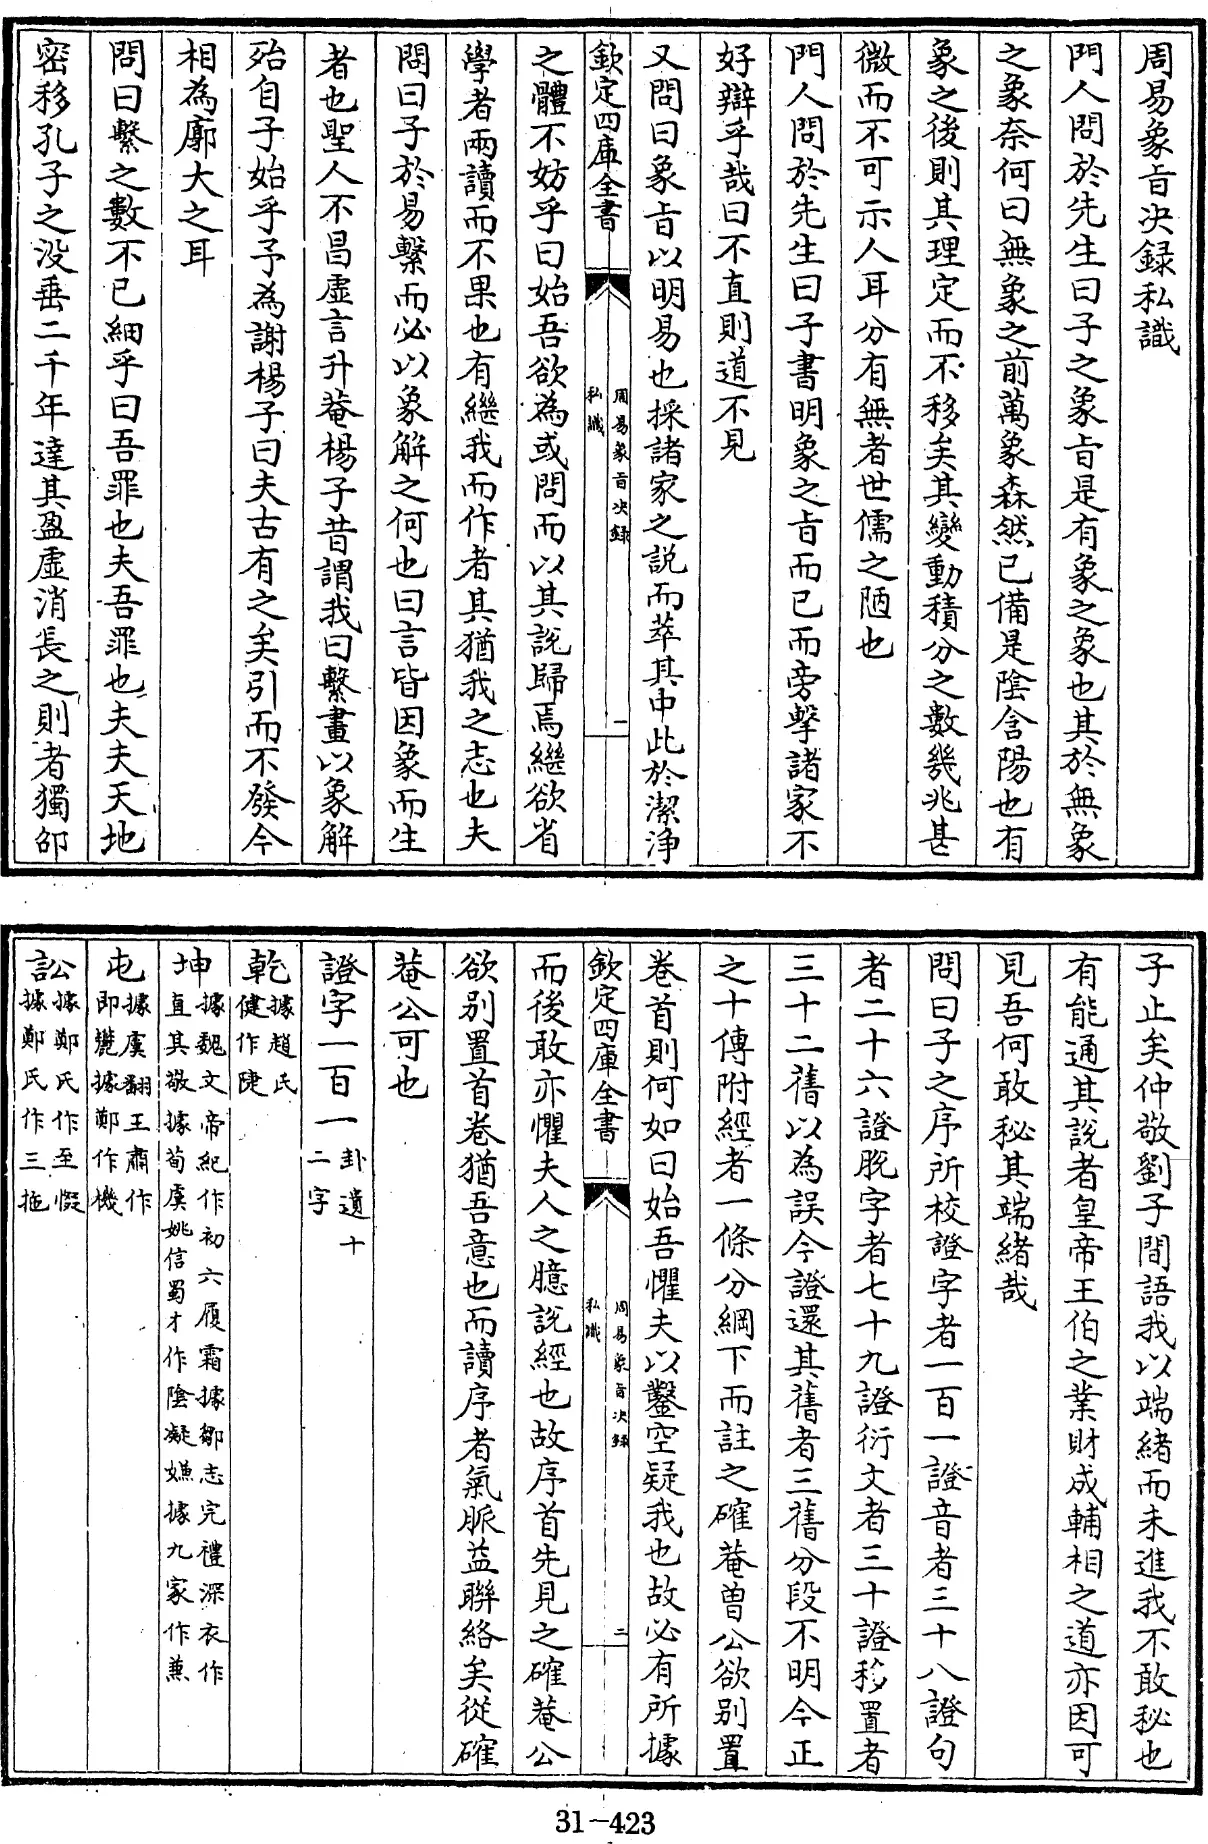 周易象旨决録私識
門人問於先生曰子之象旨是有象之象也其於無象
之象奈何曰無象之前萬象森然已備是陰含陽也有
象之後則其理定而不移矣其變動積分之數幾兆甚
微而不可示人耳分有無者世儒之陋也
門人問於先生曰子書明象之旨而已而旁擊諸家不
好辯乎哉曰不直則道不見
又問曰象旨以明易也採諸家之説而萃其中此於潔浄
欽定四庫全書
周易象旨决録
私識
一
之體不妨乎曰始吾欲為或問而以其説歸焉繼欲省
學者兩讀而不果也有繼我而作者其猶我之志也夫
問曰子於易繫而必以象解之何也曰言皆因象而生
者也聖人不昌虛言升菴楊子昔謂我曰繫畫以象解
殆自子始乎予為謝楊子曰夫古有之矣引而不發今
相為廓大之耳
問曰繫之數不已細乎曰吾罪也夫吾罪也夫夫天地
密移孔子之没垂二千年達其盈虛消長之則者獨邵
子止矣仲敬劉子間語我以端緒而未進我不敢秘也
有能通其説者皇帝王伯之業財成輔相之道亦因可
見吾何敢秘其端緒哉
問曰子之序所校證字者一百一證音者三十八證句
者二十六證脱字者七十九證衍文者三十證移置者
三十二舊以為誤今證還其舊者三舊分段不明今正
之十傳附經者一條分綱下而註之確菴曽公欲别置
卷首則何如曰始吾懼夫以鑿空疑我也故必有所據
欽定四庫全書
周易象旨决録
私識
二
而後敢亦懼夫人之臆説經也故序首先見之確菴公
欲别置首卷猶吾意也而讀序者氣脈益聯絡矣從確
菴公可也
證字一百一卦遺十二字
乾據趙氏健作㨗
坤據魏文帝紀作初六履霜據鄒志完禮深衣作直其敬據荀虞姚信蜀才作陰凝嫌據九家作兼
屯據虞翻王肅作即麓據鄭作機
訟據鄭氏作至惙據鄭氏作三拕
31-423